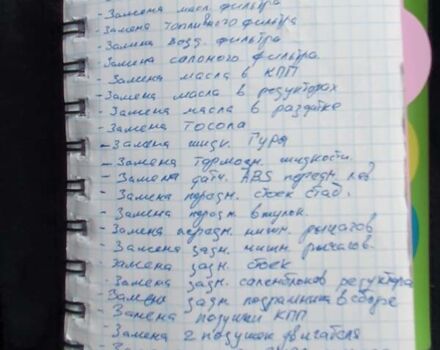 - Замена масл. фильтра
- Замена топливного фильтра
- Замена возд. фильтра
- Замена салоного фильтра
- Замена масла в КПП
- Замена масла в редукторах
- Замена масла в раздатке
- Замена Тосола
- Замена жидк. Гура
- Замена тормозн. жидкости
- Замена датч. ABS передн. лев
- Замена передн. стоек стаб.
- Замена передн втулок.
- Замена передн. нижн. рычагов
- Замена задн. нижн. рычагов.
- Замена задн. стоек
- Замена задн. саленблоков редуктора
- Замена задн подрамника в сборе
- Замена подушки КПП
- Замена 2 подушек двигателя